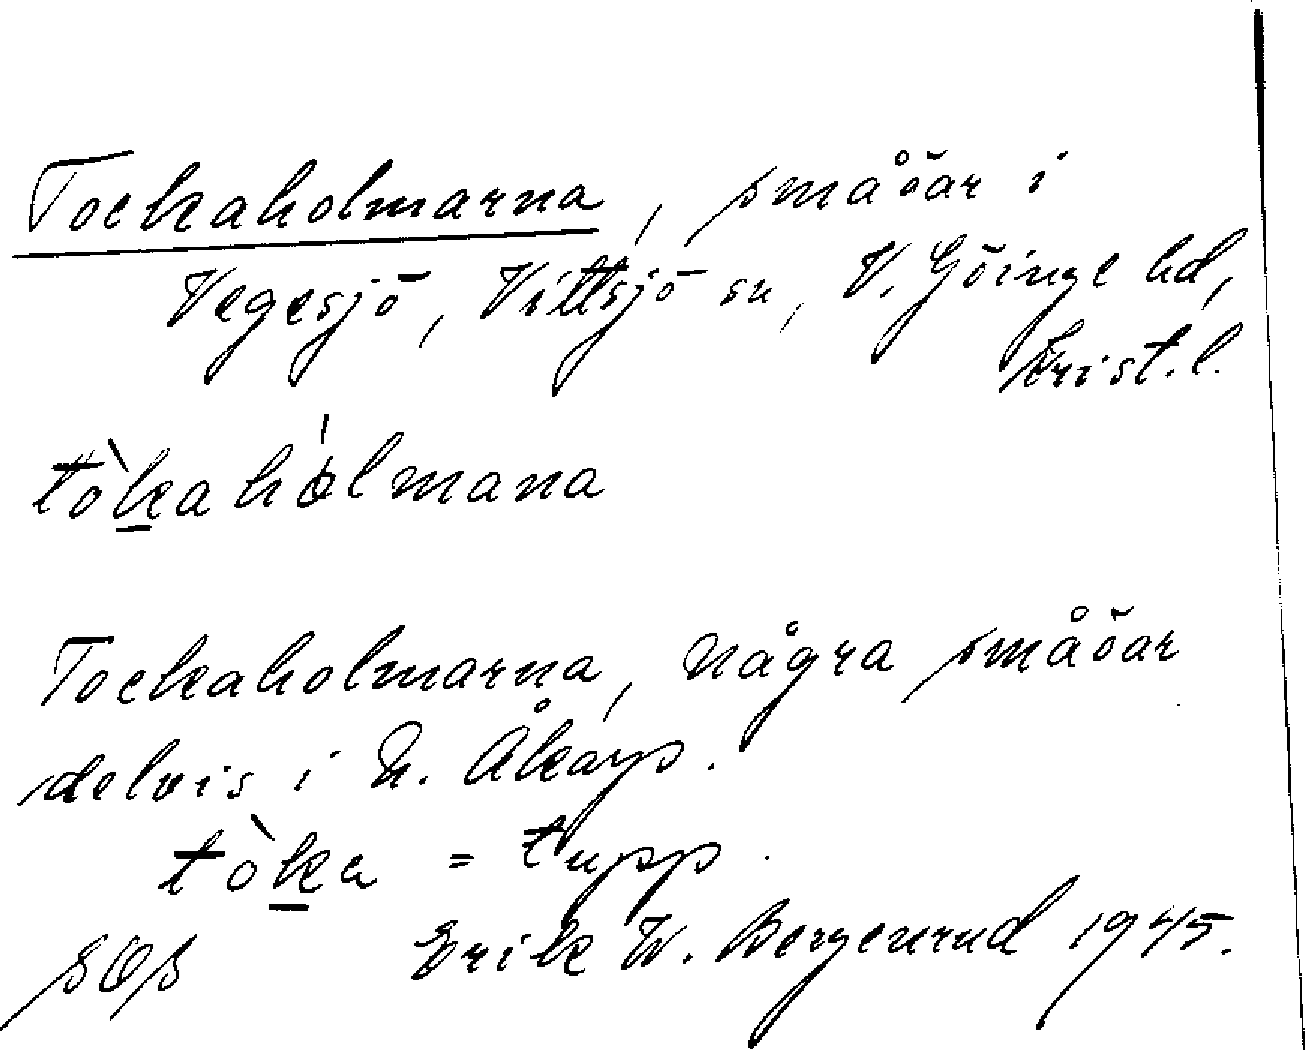 Tockaholmarna, småöar i
Vegesjö, Vittsjö sn, V. Göinge hd,
Krist. l.
tòkahólmana
Tockaholmarna, några småöar
delvis i N. Åkarp.
tòka = tupp.
SOS Erik W. Bergenrud 1945.